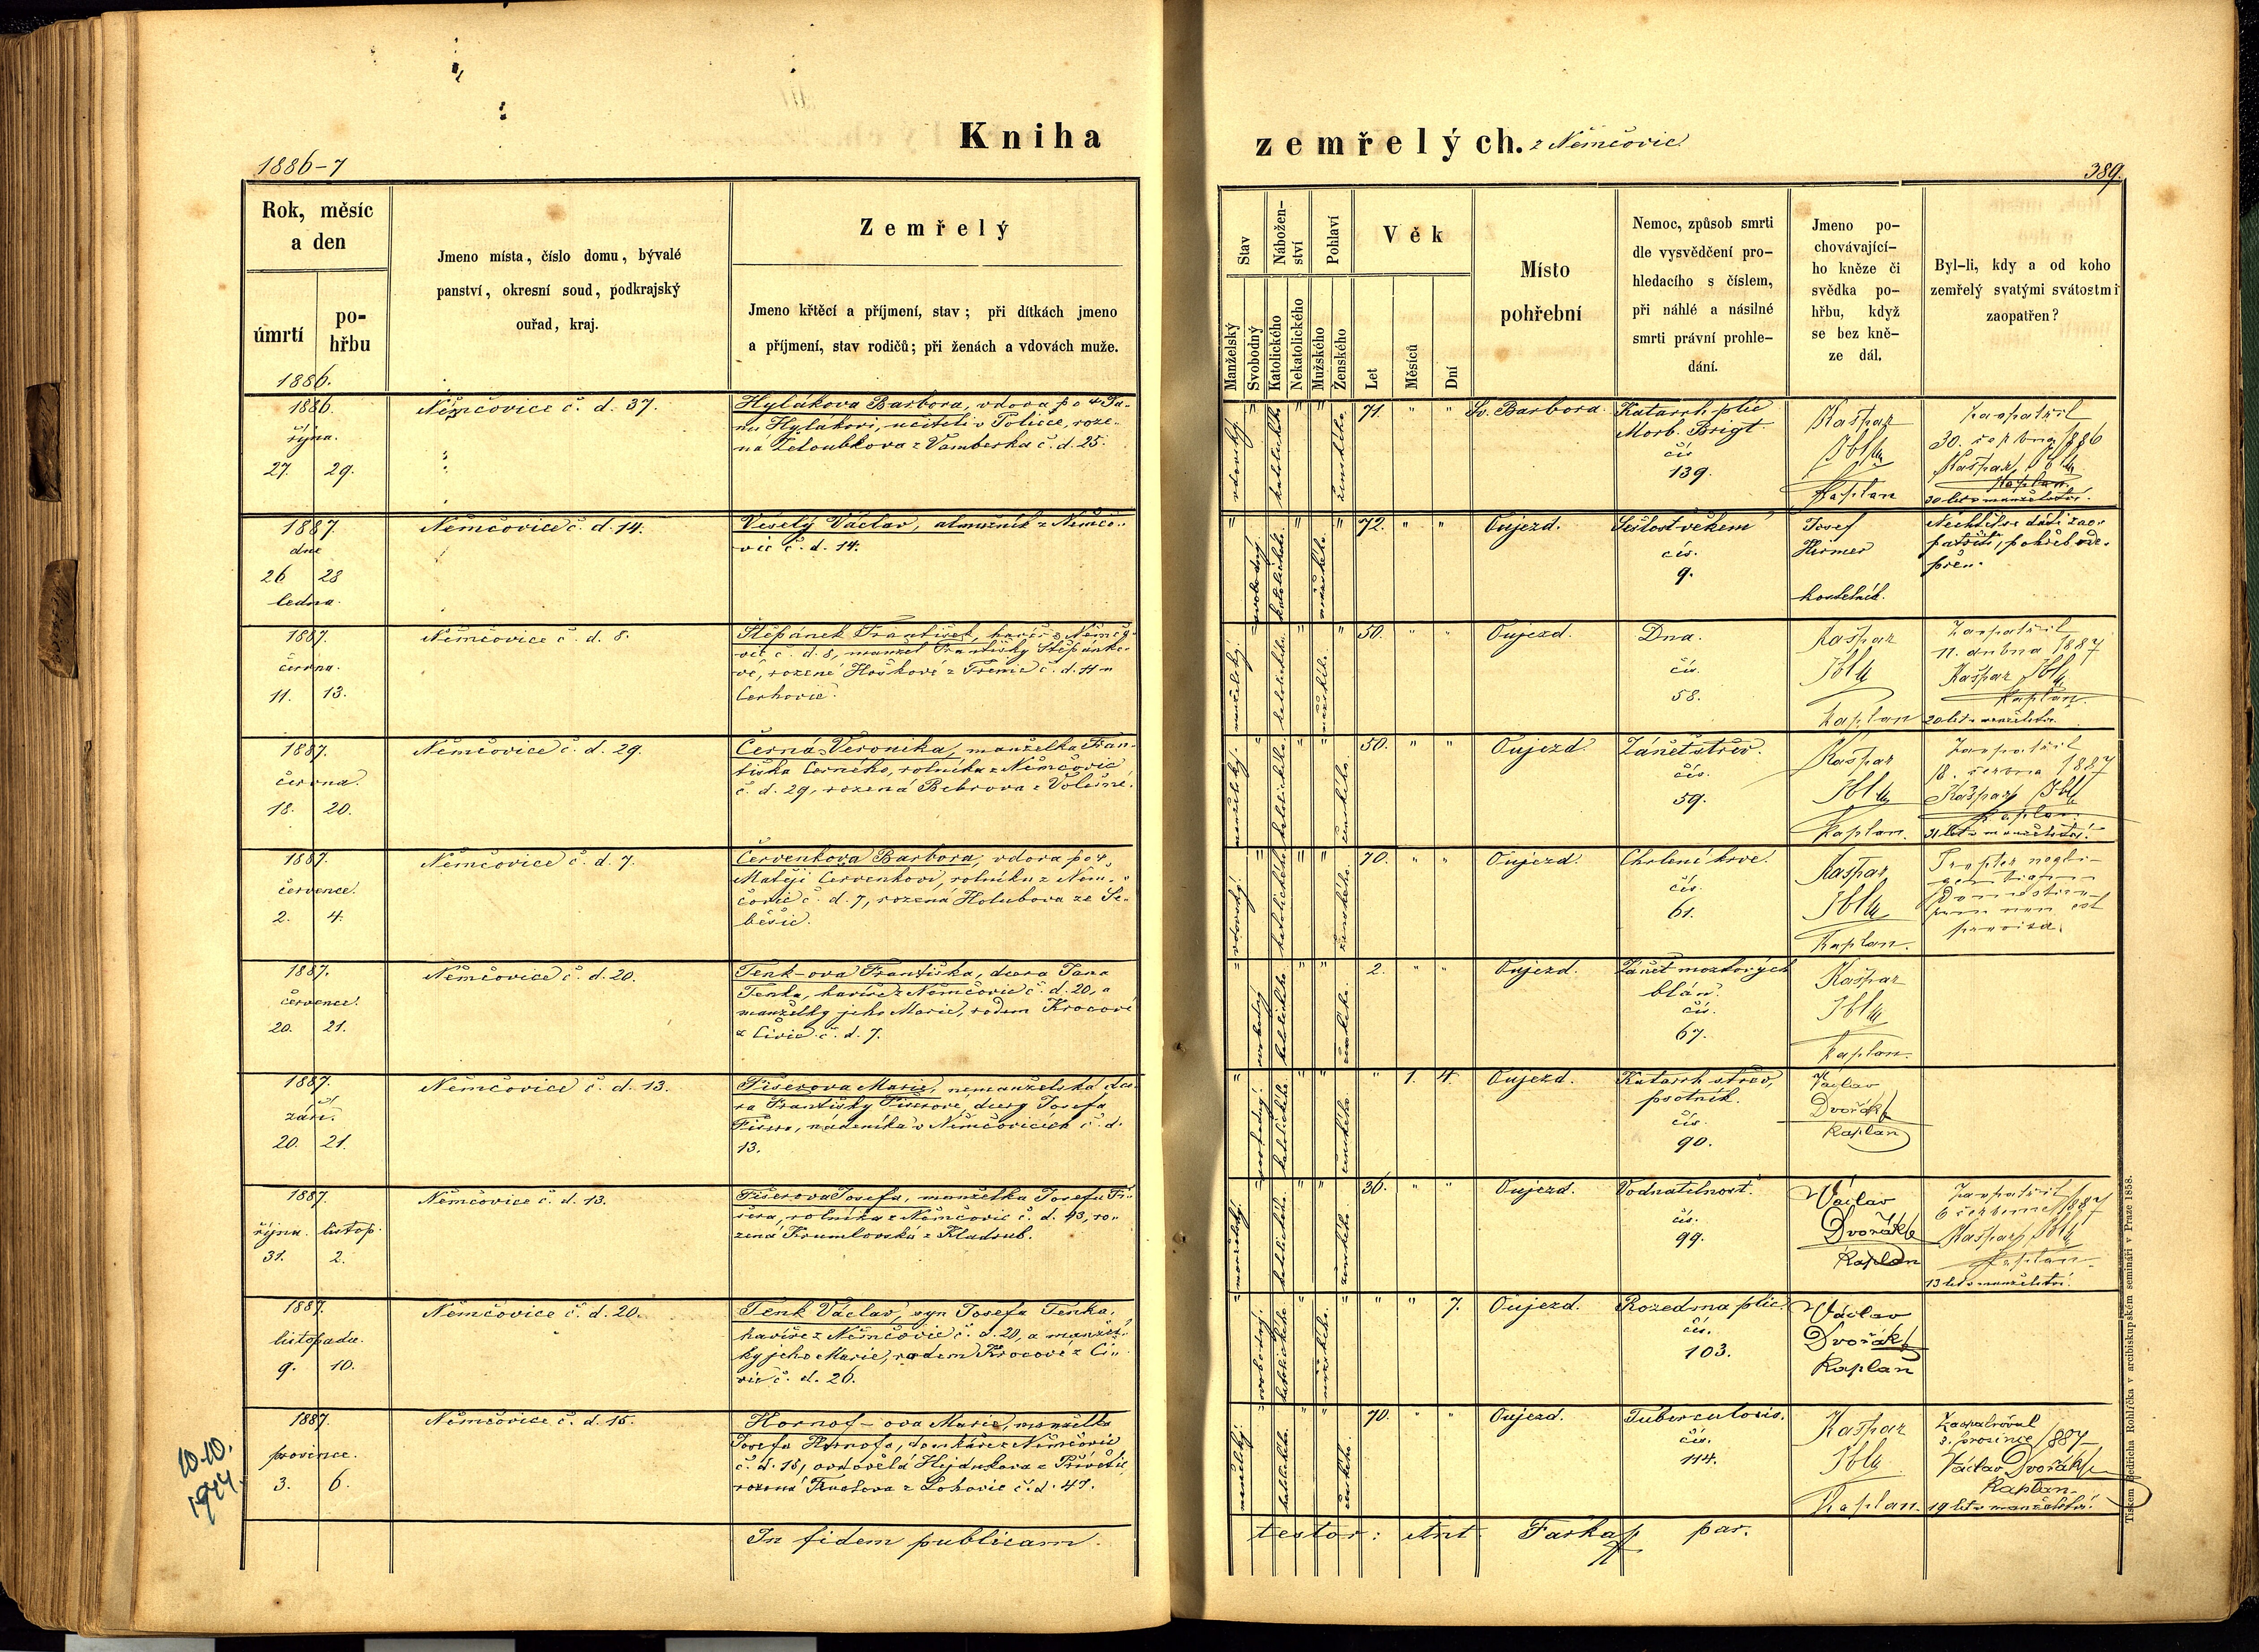 Kniha
zemřelých. z Němčovic
1886-7
389.
Rok, měsíc
a den
úmrtí
po-
hřbu
Jmeno místa, číslo domu, bývalé
panství, okresní soud, podkrajský
ouřad, kraj.
Zemřelý
Jmeno křtěcí a příjmení, stav; při dítkách jmeno
a příjmení, stav rodičů; při ženách a vdovách muže.
Stav
Manželský
Svobodný
Nábožen-
ství
Katolického
Nekatolického
Pohlaví
Mužského
Ženského
Věk
Let
Měsíců
Dní
Místo
pohřební
Nemoc, způsob smrti
dle vysvědčení pro-
hledacího s číslem,
při náhlé a násilné
smrti právní prohle-
dání.
Jmeno po-
chovávající-
ho kněze či
svědka po-
hřbu, když
se bez kně-
ze dál.
Byl-li, kdy a od koho
zemřelý svatými svátostmi
zaopatřen?
1886.
1886
října.
27. 29.
Němčovice č. d. 37.
Hylákova Barbora, vdova po + Ja-
nu Hylákovi, učiteli v Poličce, roze-
ná Zeloubkova z Vamberka č. d. 25.
vdovský.
katolického
ženského.
71. " "
Sv. Barbora.
Katarrh plic
Morb. Brigt.
čís
139.
Kašpar
Ibl
Kaplan
zaopatřil
30. 1886
Kašpar Ibl
Kaplan.
30 let v manželství.
1887.
dne
26 28
ledna.
Němčovice č. d. 14.
Veselý Václav, almužník z Němčo-
vic č. d. 14.
svobodný.
katolického.
mužského.
72. " "
Oujezd.
Sešlost věkem
čís.
9.
Josef
Hirmer
kostelník.
Nechtěl se dáti zao-
patřiti, pohřeb ode-
přen.
1887.
června.
11. 13.
Němčovice č. d. 8.
Štěpánek František, havíř z Němčo-
vic č. d. 8, manžel Františky Štěpánko-
vé, rozené Hoškové z Třenic č. d. 11 u
Cerhovic.
manželský.
katolického.
mužského.
50. " "
Oujezd.
Dna.
čís.
58.
Kašpar
Ibl
Kaplan
Zaopatřil
11. dubna 1887
Kašpar Ibl
Kaplan.
20 let v manželství.
1887.
června.
18. 20.
Němčovice č. d. 29.
Černá Veronika, manželka Fran-
tiška Černého, rolníka z Němčovic
č. d. 29, rozená Bebrova z Volešné.
manželský.
katolického.
ženského.
50. " "
Oujezd.
Zánět střev.
čís.
59.
Kašpar
Ibl
Kaplan.
Zaopatřil
18. června 1887
Kašpar Ibl
Kaplan.
31 let v manželství.
1887.
července.
2. 4.
Němčovice č. d. 7.
Červenkova Barbora, vdova po +
Matěji Červenkovi, rolníku z Něm-
čovic č. d. 7, rozená Holubova ze Se-
běsic.
vdovský.
katolického
ženského.
70. " "
Oujezd.
Chrlení krve.
čís.
61.
Kašpar
Ibl
Kaplan.
Propter negli-
gentiam
non est
provisa.
1887.
července.
20. 21.
Němčovice č. d. 20.
Tenk-ova Františka, dcera Jana
Tenka, havíře z Němčovic č. d. 20, a
manželky jeho Marie, rodem Krocové
z Čivic č. d. 7.
svobodný
katolického
ženského.
2. " "
Oujezd.
Zánět mozkových
blán.
čís.
67.
Kašpar
Ibl
Kaplan.
1887.
září.
20. 21.
Němčovice č. d. 13.
Fišerova Marie, nemanželská dce-
ra Františky Fišerové, dcery Josefa
Fišera, nádeníka v Němčovicích č. d.
13.
svobodný.
katolického.
ženského.
" 1. 4.
Oujezd.
Katarrh střev,
psotník.
čís.
90.
Václav
Dvořák
Kaplan
1887.
října. listop.
31. 2.
Němčovice č. d. 13.
Fišerova Josefa, manželka Josefa Fi-
šera, rolníka z Němčovic č. d. 13, ro-
zená Krumlovská z Kladrub.
manželský.
katolického.
ženského.
36. " "
Oujezd.
Vodnatelnost.
čís.
99.
Václav
Dvořák
Kaplan
Zaopatřil
6 července 1887
Kašpar Ibl
Kaplan.
13 let v manželství.
1887.
listopadu.
9. 10.
Němčovice č. d. 20.
Tenk Václav, syn Josefa Tenka,
havíře z Němčovic č. d. 20, a manžel-
ky jeho Marie, rodem Krocové z Či-
vic č. d. 26.
svobodný.
katolického.
mužského.
" " 7.
Oujezd.
Rozedma plic.
čís.
103.
Václav
Dvořák
Kaplan
1887.
prosince.
3. 6.
Němčovice č. d. 15.
Hornof-ova Marie, manželka
Josefa Hornofa, domkáře z Němčovic
č. d. 15, ovdovělá Hejdukova z Přívětic
rozená z Lohovic č. d. 47.
manželský.
katolického.
ženského.
70. " "
Oujezd.
Tuberculosis.
čís.
114.
Kašpar
Ibl
Kaplan.
Zaopatřoval
2. prosince 1887
Václav Dvořák
Kaplan.
19 let v manželství.
10.10.
1944.
In fidem publicam.
testor: Ant. Farka par.
Tiskem Bedřicha Rohlíčka v arcibiskupském semináři v Praze 1858.